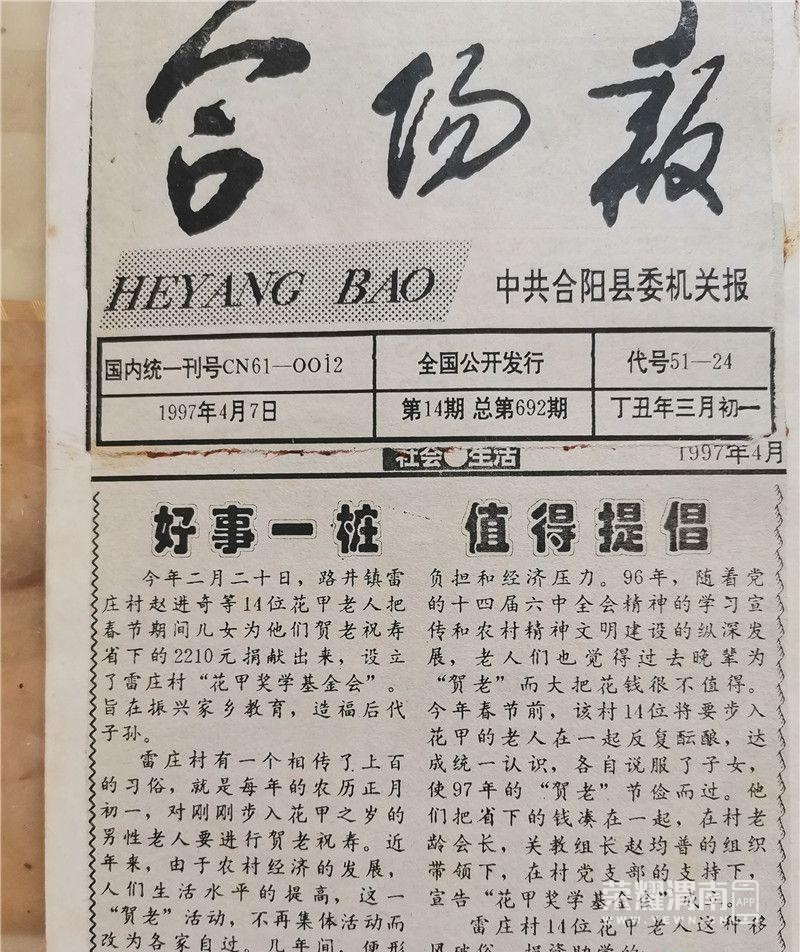 合阳报
HEYANG BAO
中共合阳县委机关报
国内统一刊号CN61—0012
全国公开发行
代号51—24
1997年4月7日
第14期 总第692期
丁丑年三月初一
社会●生活
1997年4月
好事一桩 值得提倡
今年二月二十日，路井镇雷
庄村赵进奇等14位花甲老人把
春节期间儿女为他们贺老祝寿
省下的2210元捐献出来，设立
了雷庄村“花甲奖学基金会”。
旨在振兴家乡教育，造福后代
子孙。
雷庄村有一个相传了上百
的习俗，就是每年的农历正月
初一，对刚刚步入花甲之岁的
男性老人要进行贺老祝寿。近
年来，由于农村经济的发展，
人们生活水平的提高，这一
“贺老”活动，不再集体活动而
改为各家自过。几年间，便形
负担和经济压力。96年，随着党
的十四届六中全会精神的学习宣
传和农村精神文明建设的纵深发
展，老人们也觉得过去晚辈为
“贺老”而大把花钱很不值得。
今年春节前，该村14位将要步入
花甲的老人在一起反复酝酿，达
成统一认识，各自说服了子女，
使97年的“贺老”节俭而过。他
们把省下的钱凑在一起，在村老
龄会长，关教组长赵均普的组织
带领下，在村党支部的支持下，
宣告“花甲奖学基金会”成立。
雷庄村14位花甲老人这种移
风破俗，捐资助学的
荣耀渭南APP
WWW.YEWN.CN